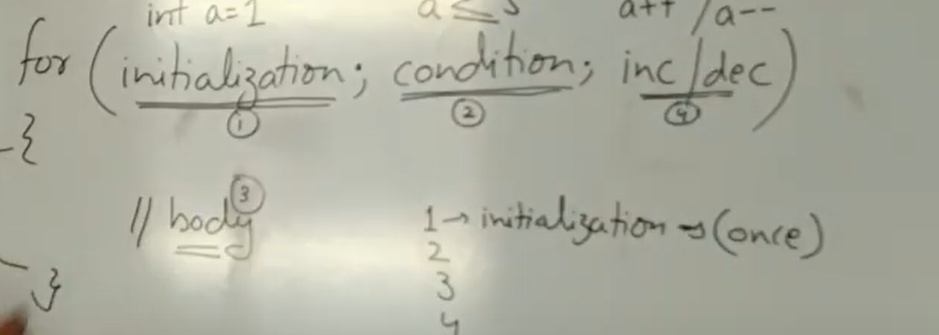 int a=1 a≤5 a++ /a--
for (initialization; condition; inc/dec)
① ② ④
{
// body ③
1→ initialization → (once)
2
3
4
}